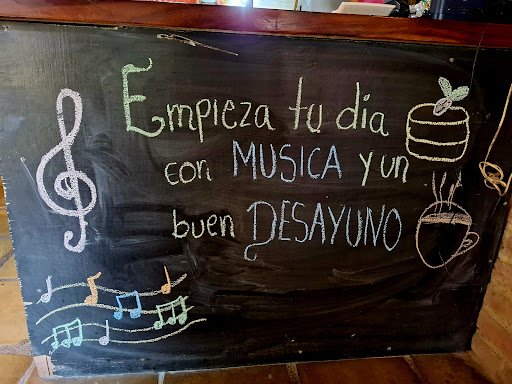 Empieza tu dia
con MUSICA y un
buen DESAYUNO